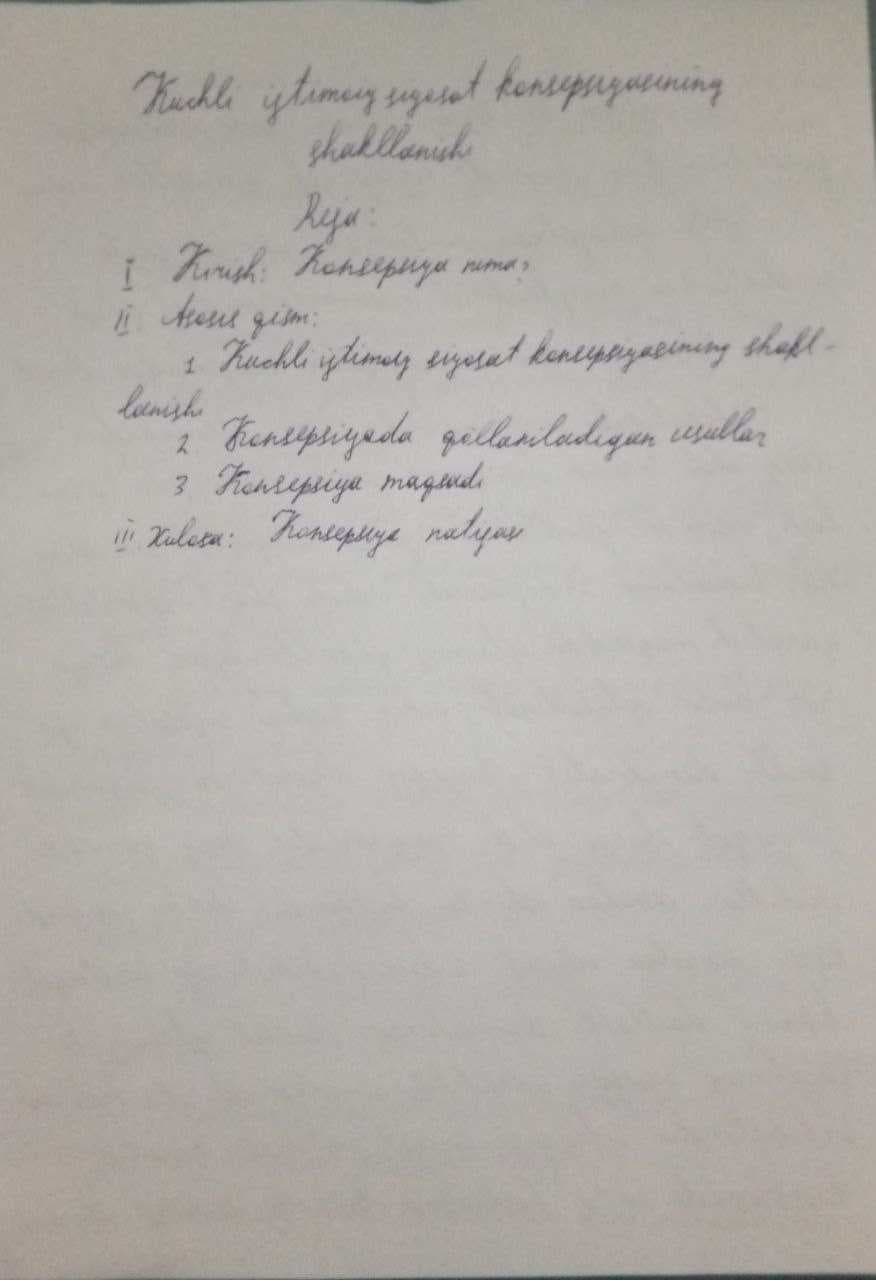 Kuchli ijtimoiy siyosat konsepsiyasining
shakllanishi
Reja:
I Kirish: Konsepsiya nima?
II Asosiy qism:
1 Kuchli ijtimoiy siyosat konsepsiyasining shakl-
lanishi
2 Konsepsiyada qo'llaniladigan usullar
3 Konsepsiya maqsadi
III Xulosa: Konsepsiya natijasi